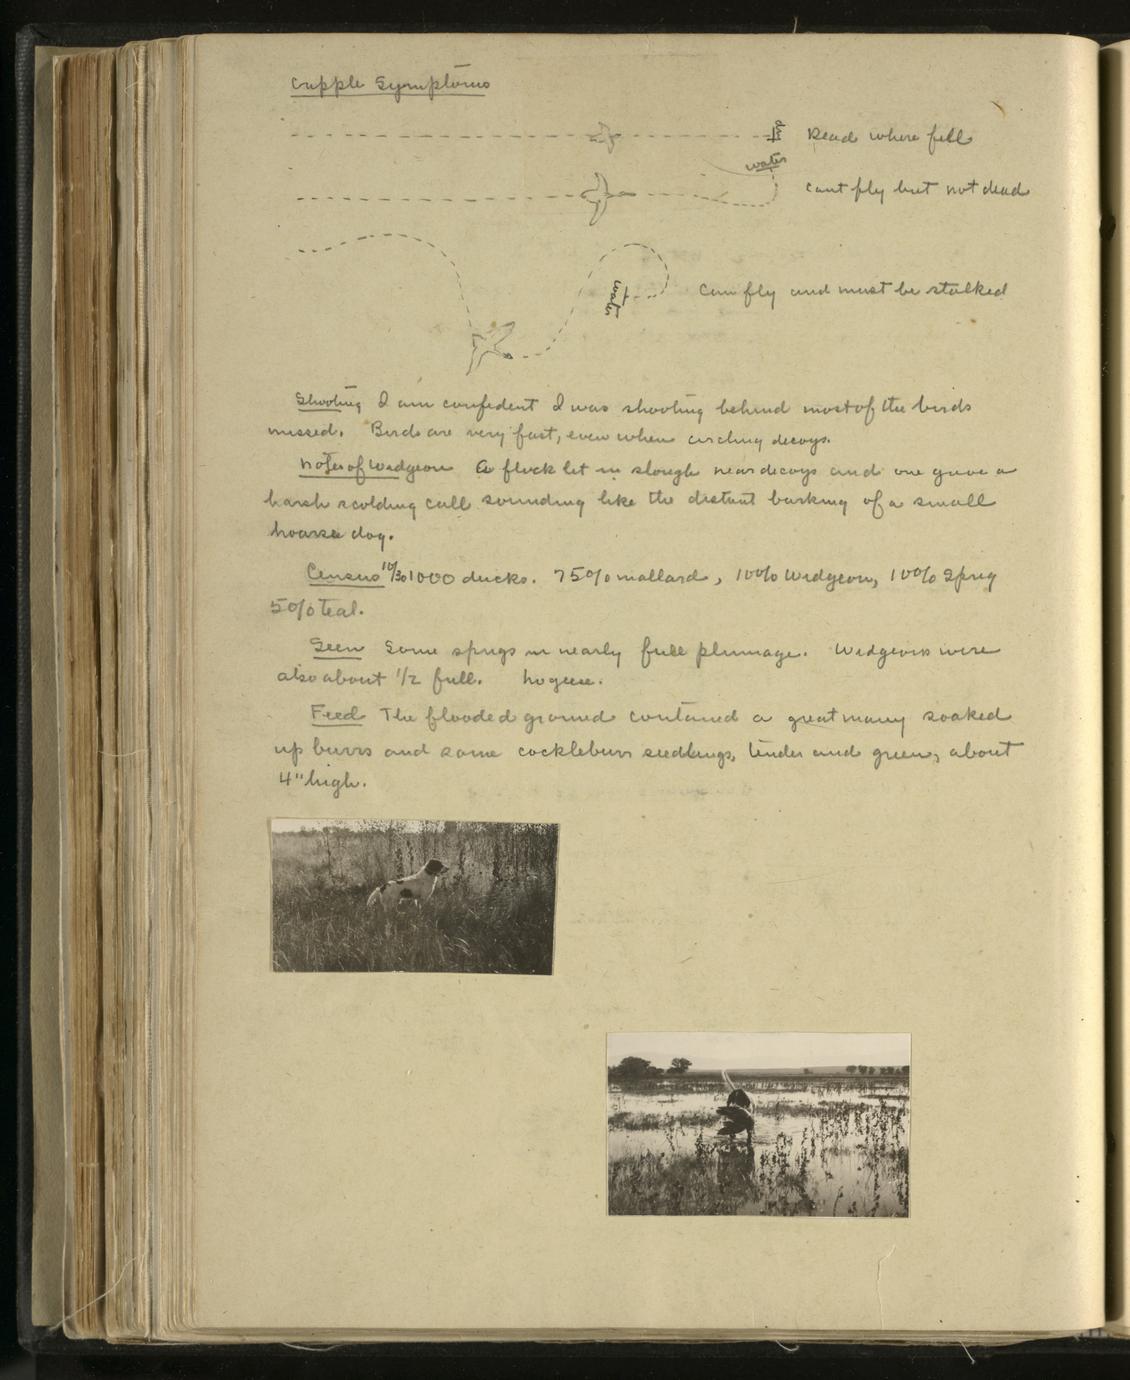 Cripple Symptoms
Dead where fell
water
cant fly but not dead
water
Can fly and must be stalked
Shooting I am confident I was shooting behind most of the birds
missed. Birds are very fast, even when circling decoys.
Notes of Widgeon A flock lit in slough near decoys and one gave a
harsh scolding call sounding like the distant barking of a small
hoarse dog.
Census 10/30 1000 ducks. 75% mallard, 10% Widgeon, 10% Sprig
5% teal.
Seen Some sprigs in nearly full plumage. Widgeons were
also about 1/2 full. No geese.
Feed The flooded ground contained a great many soaked
up burrs and some cockleburr seedlings, tender and green, about
4" high.